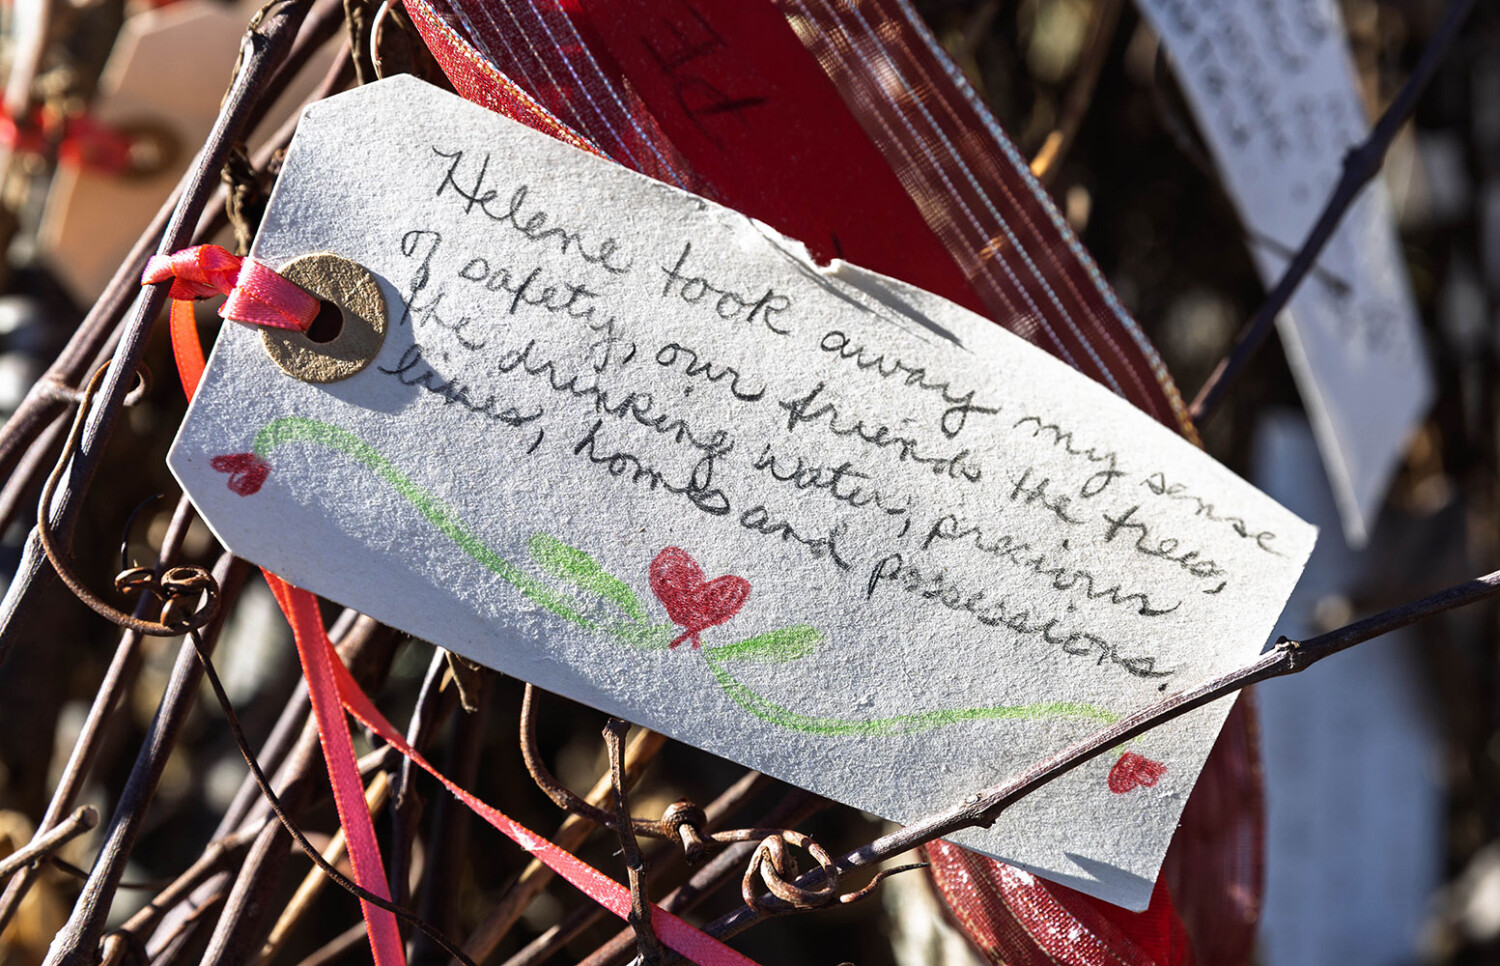 Helene took away my sense
of safety, our friends the trees,
the drinking water, precious
lives, homes and possessions.